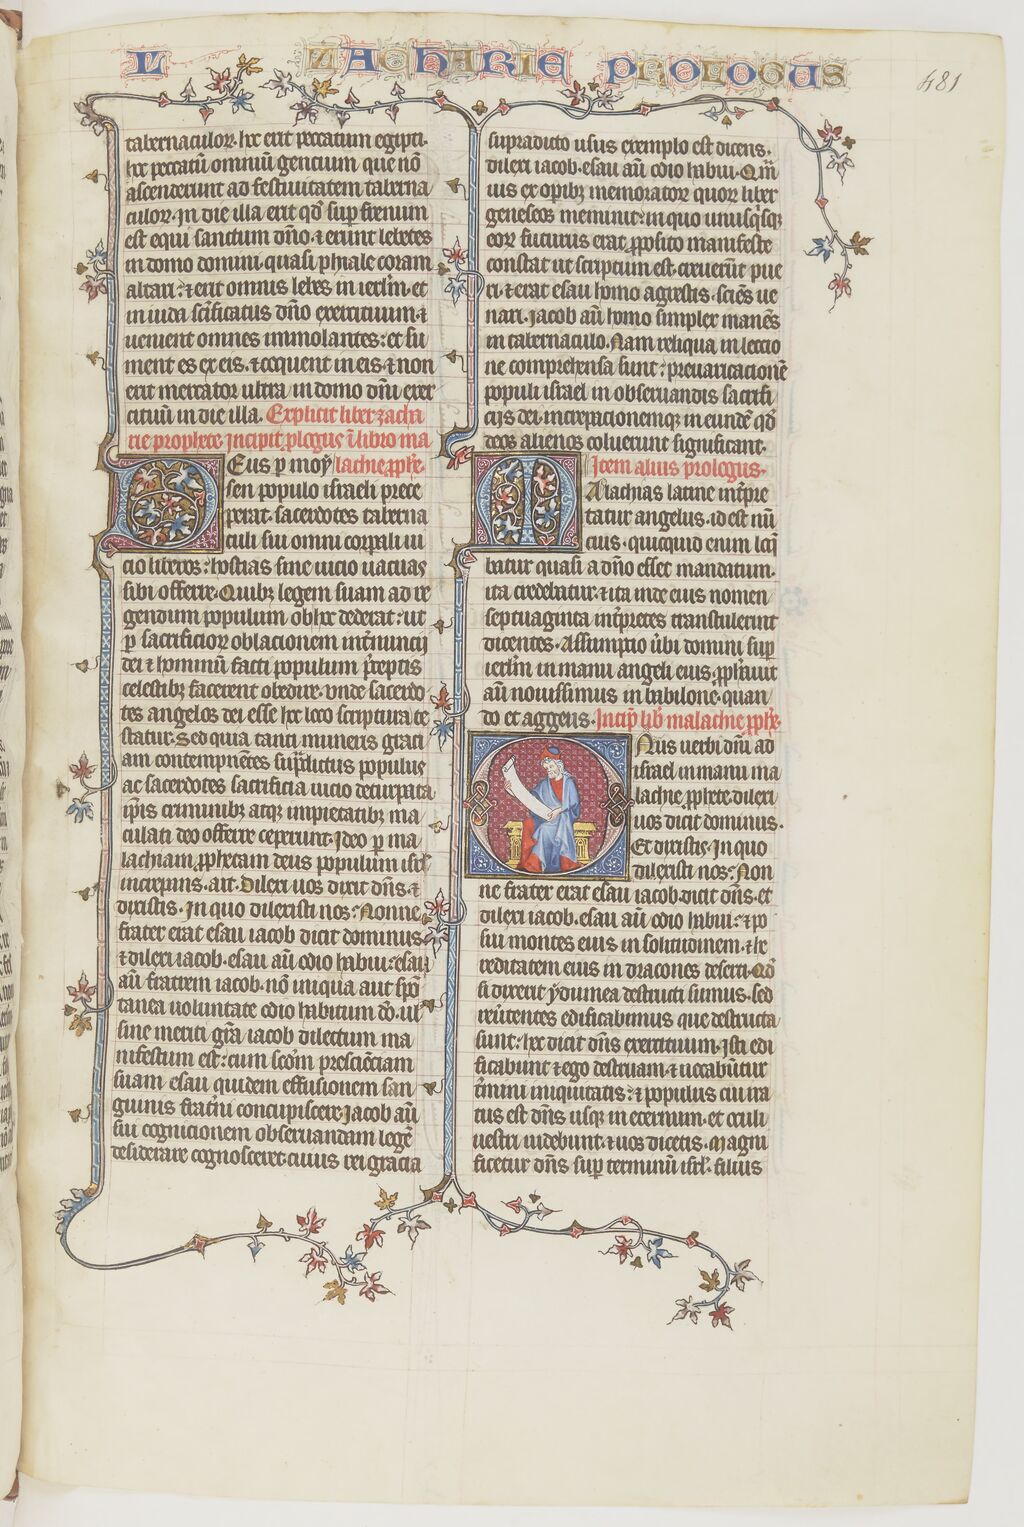 L ZACHARIE PROLOGUS
481
tabernaculor̄. hec erit peccatum egipti.
hec peccatū omniū gentium que nō
ascenderunt ad festiuitatem taberna
culor̄. In die illa erit qđ sup frenum
est equi sanctum dño. ⁊ erunt lebetes
in domo domini quasi phiale coram
altari. ⁊ erit omnis lebes in ierlm̄. et
in iuda scīficatus dño exercituum. ⁊
uenient omnes immolantes: et su
ment es ex eis. ⁊ coquent in eis. ⁊ non
erit mercator ultra in domo dñi exer
cituū in die illa. Explicit liber zacha
rie prophete. Incipit plogus ī libro ma
lachie pphe.
Eus p moy
sen populo israeli prece
perat. sacerdotes taberna
culi sui omni corpali ui
cio liberos: hostias sine uicio uacuas
sibi offerre. Quibꝫ legem suam ad re
gendum populum ob hec dederat: ut
p sacrificior̄ oblacionem int̄nuncij
dei ⁊ hominū facti populum p̄ceptis
celestibꝫ facerent obedire. vnde sacerdo
tes angelos dei esse hec loco scriptura te
statur. Sed quia tanti muneris graci
am contempnētes sup̄dictus populus
ac sacerdotes sacrificia uicio deturpata
ip̄is criminibꝫ atqꝫ impietatibꝫ ma
culati deo offerre ceperunt. Ideo p ma
lachiam pphetam deus populum isrl̄
increpans. ait. Dilexi uos dixit dñs. ⁊
dixistis. In quo dilexisti nos: Nonne
frater erat esau iacob dicit dominus.
⁊ dilexi iacob. esau aū odio habui: esau
aū fratrem iacob. nō iniqua aut spō
tanea uoluntate odio habitum do. ul̄
sine meriti gr̄a iacob dilectum ma
nifestum est: cum scd̄m presciēciam
suam esau quidem effusionem san
guinis frat̄ni concupiscere. Jacob aū
sui cognicionem obseruandam legē
desiderare cognosceret. cuius rei gracia
supradicto usus exemplo est dicens.
dilexi iacob. esau aū odio habui. Qm̄
uis ex opibꝫ memorator̄ quor̄ liber
geneseos meminit: in quo unusqꝫsqꝫ
eor̄ futurus erat pposito manifeste
constat ut scriptum est. creuerūt pue
ri. ⁊ erat esau homo agrestis. sciēs ue
nari. Jacob aū homo simplex manēs
in tabernaculo. Nam reliqua in leccio
ne comprehensa sunt: preuaricacionē
populi israel in obseruandis sacrifi
cijs dei. increpacionemqꝫ in eundē qđ
deos alienos coluerunt significant.
Item alius prologus.
Alachias latine int̄pre
tatur angelus. id est nū
cius. quicquid enim loq̄
batur quasi a dño esset mandatum.
ita credebatur. ⁊ ita inde eius nomen
septuaginta int̄pretes transtulerunt
dicentes. Assumptio u̇bi domini sup
ierlm̄ in manu angeli eius. pphauit
aū nouissimus in babilone. quan
do et aggeus. Incip̄ lib̄ malachie pphe.
Nus uerbi dñi ad
israel in manu ma
lachie pphete. dilexi
uos dicit dominus.
Et dixistis. In quo
dilexisti nos: Non
ne frater erat esau iacob. dicit dñs. et
dilexi iacob. esau aū odio habui: ⁊ po
sui montes eius in solitudinem. ⁊ he
reditatem eius in dracones deserti. Qđ
si dixerit ydumea destructi sumus. sed
reūtentes edificabimus que destructa
sunt: hec dicit dñs exercituum. Isti edi
ficabunt ⁊ ego destruam. ⁊ uocabūtur
t̄mini iniquitatis: ⁊ populus cui ira
tus est dñs usqꝫ in eternum. et oculi
uestri uidebunt. ⁊ uos dicetis. Magni
ficetur dñs sup terminū isrl̄. filius